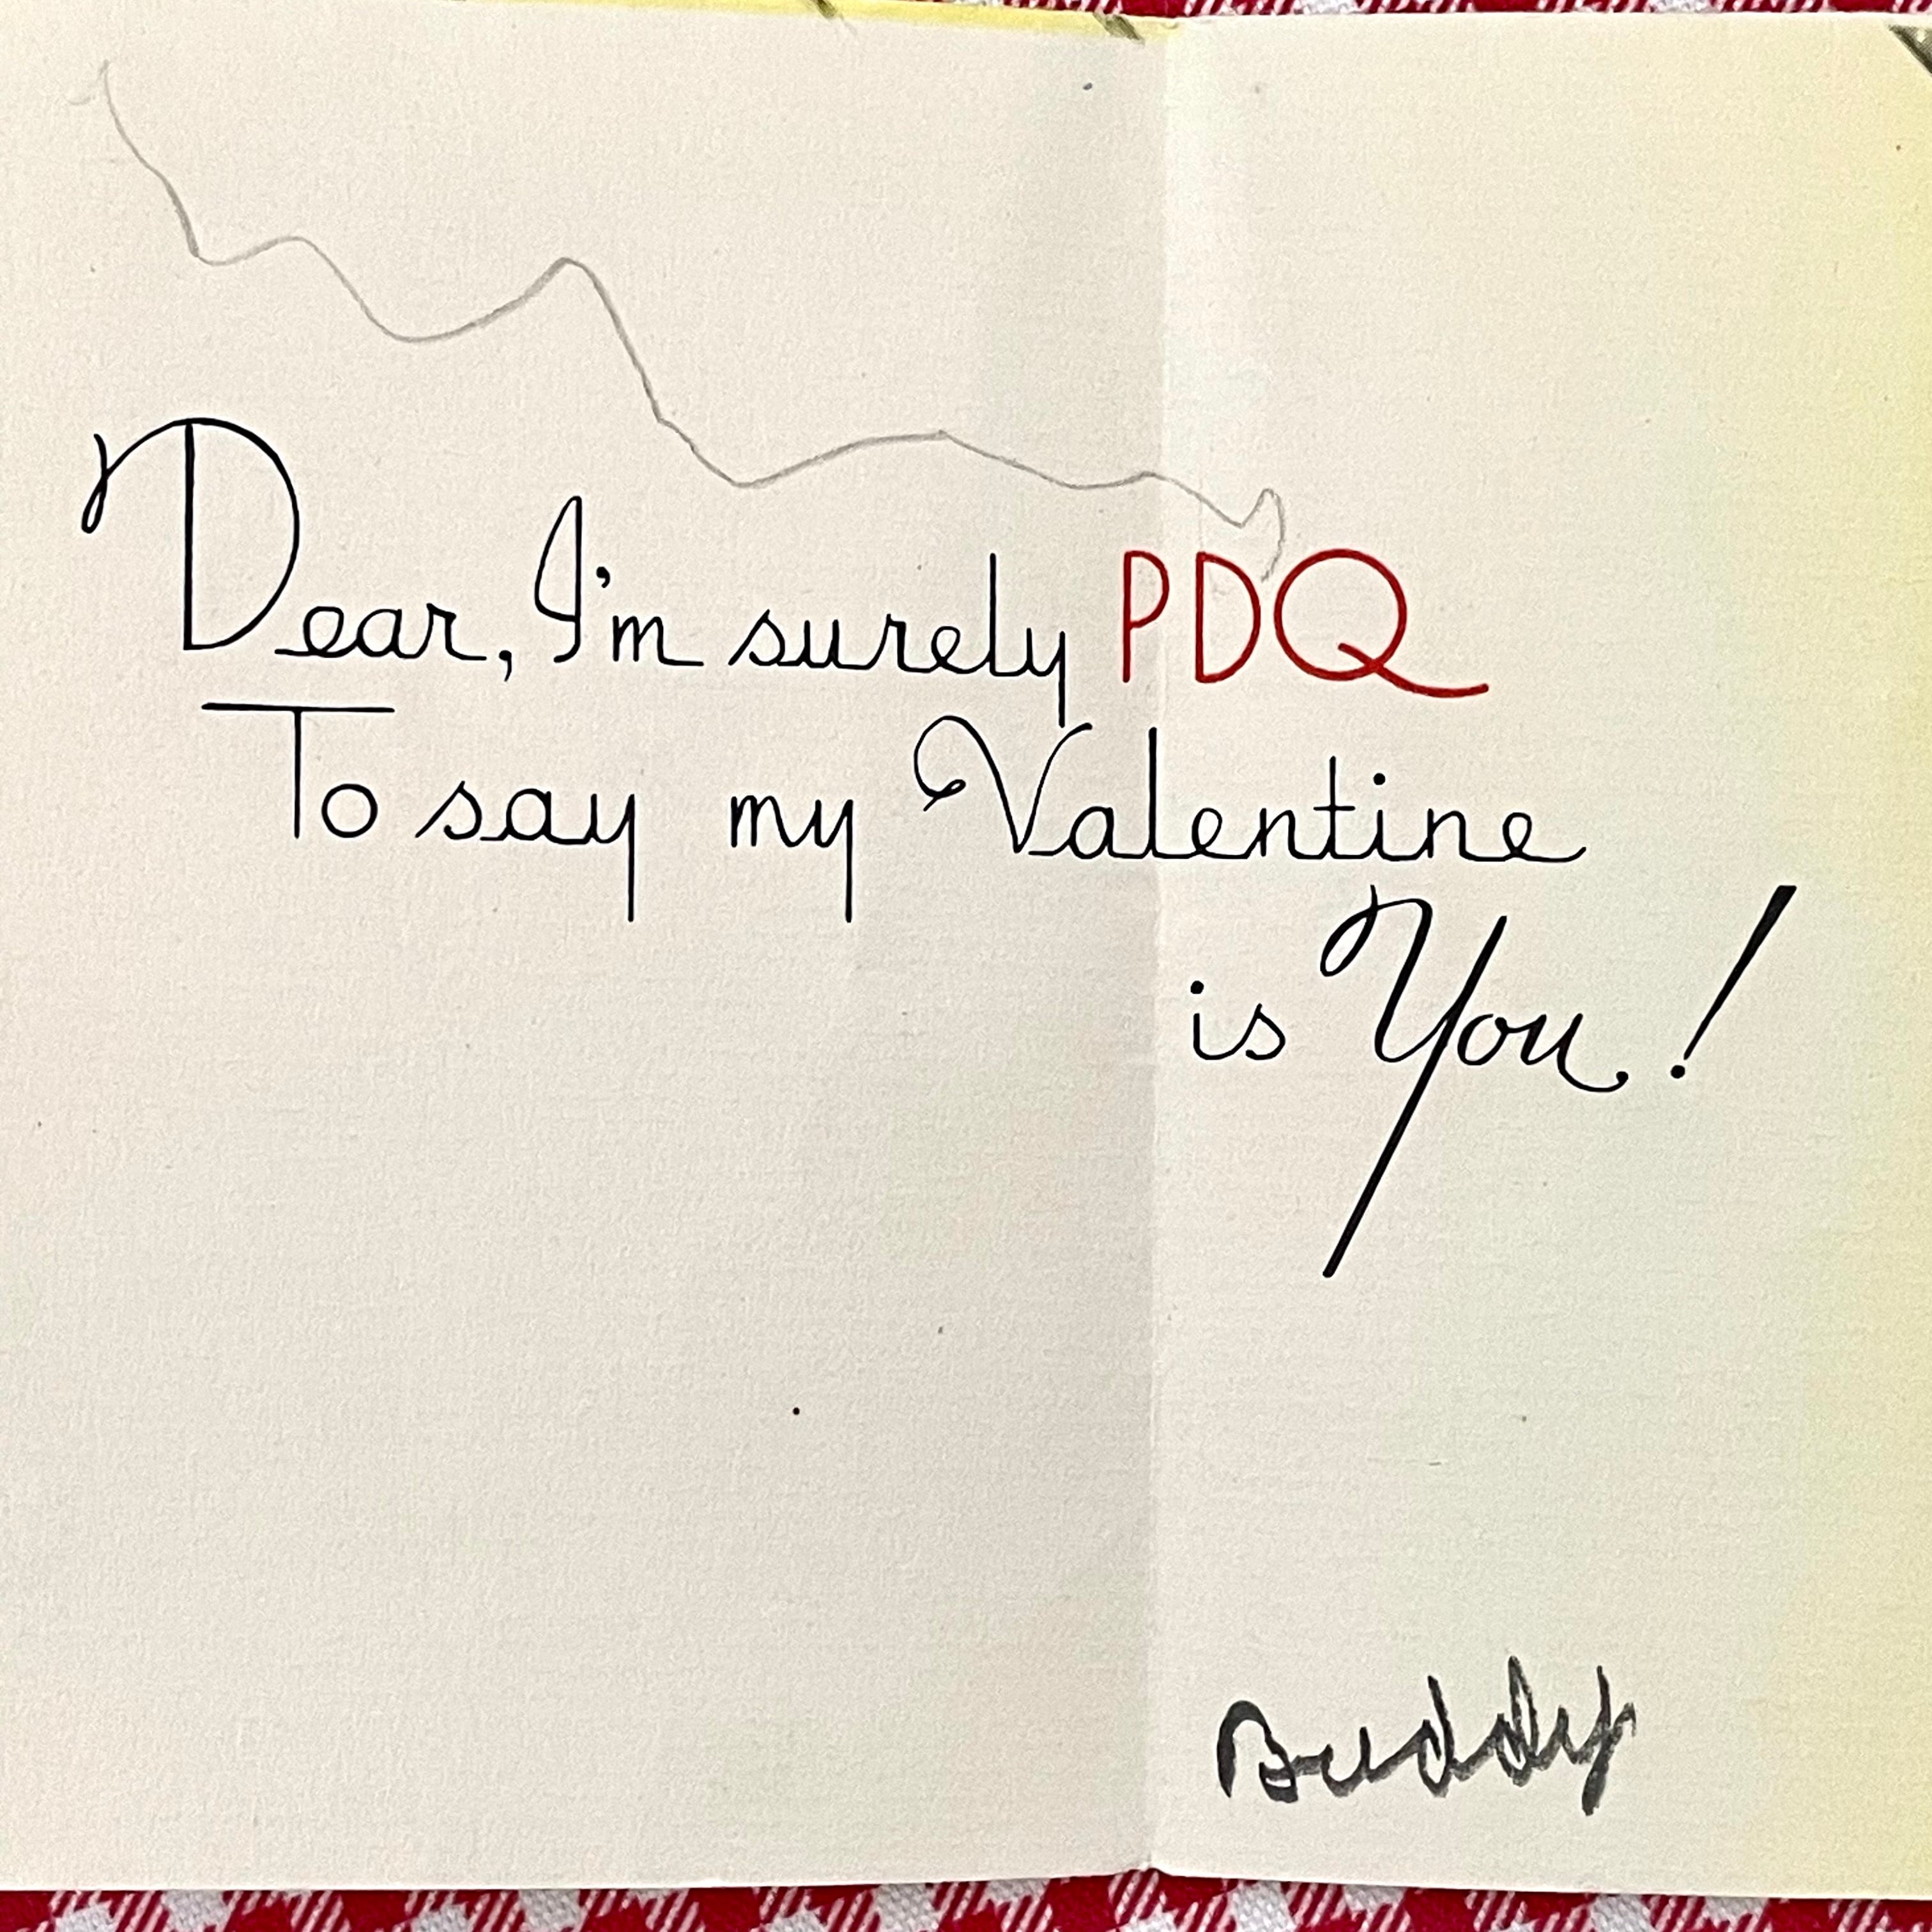 Dear, I'm surely PDQ
To say my Valentine
is You!
Buddy